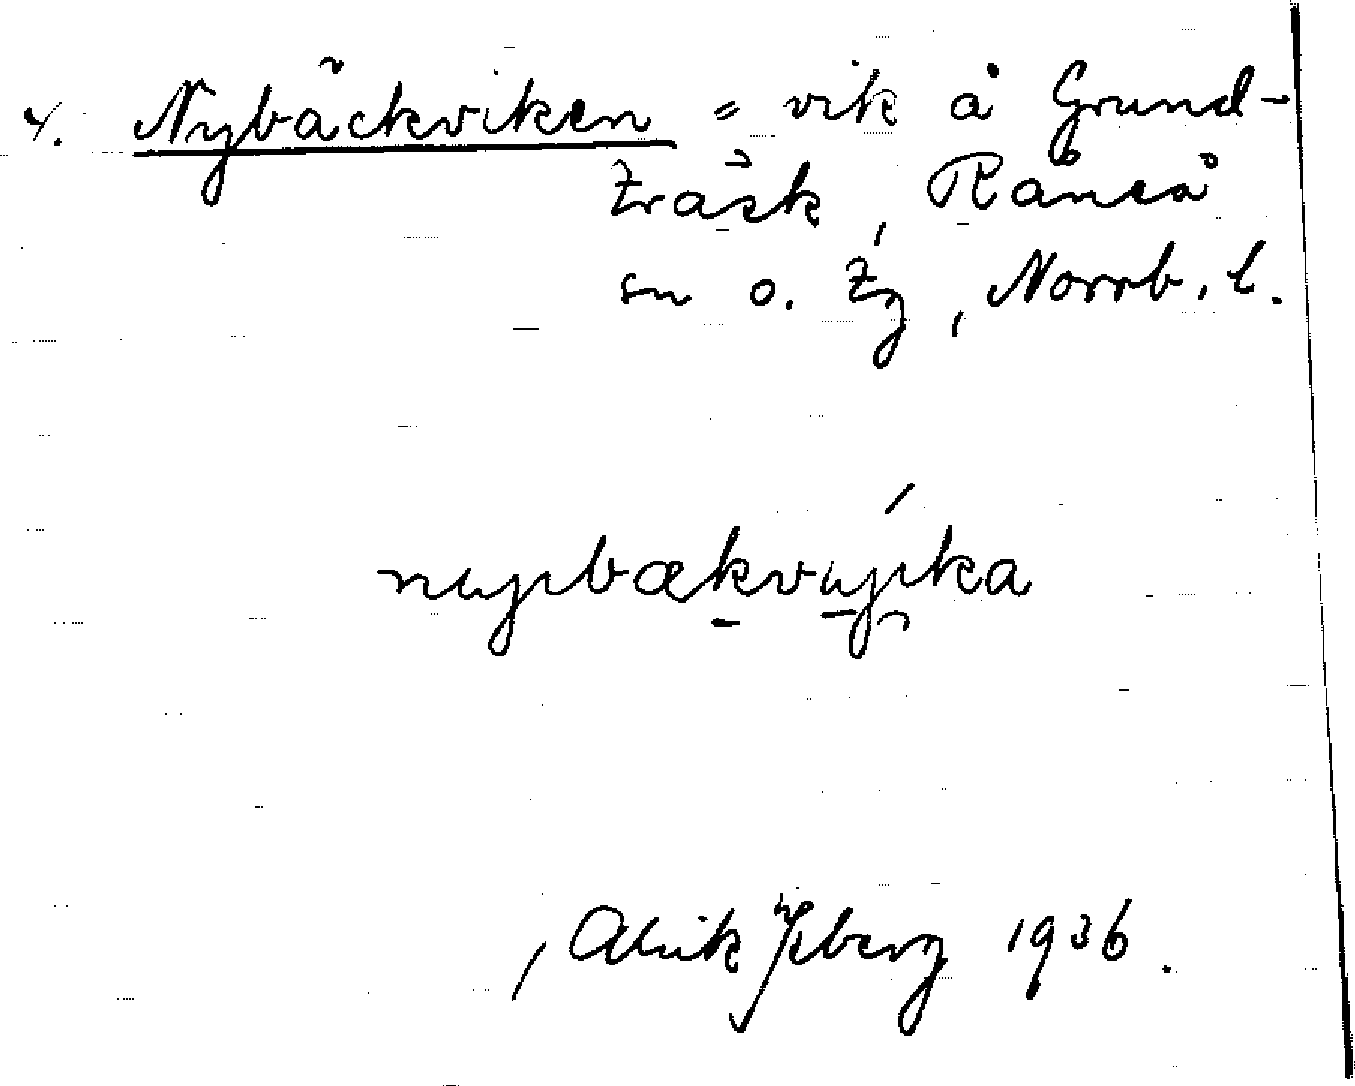 4. Nybäckviken = vik å Grund-
träsk, Råneå
sn o. tg, Norrb. l.
nyjbækvyjka
Alrik Byberg 1936.